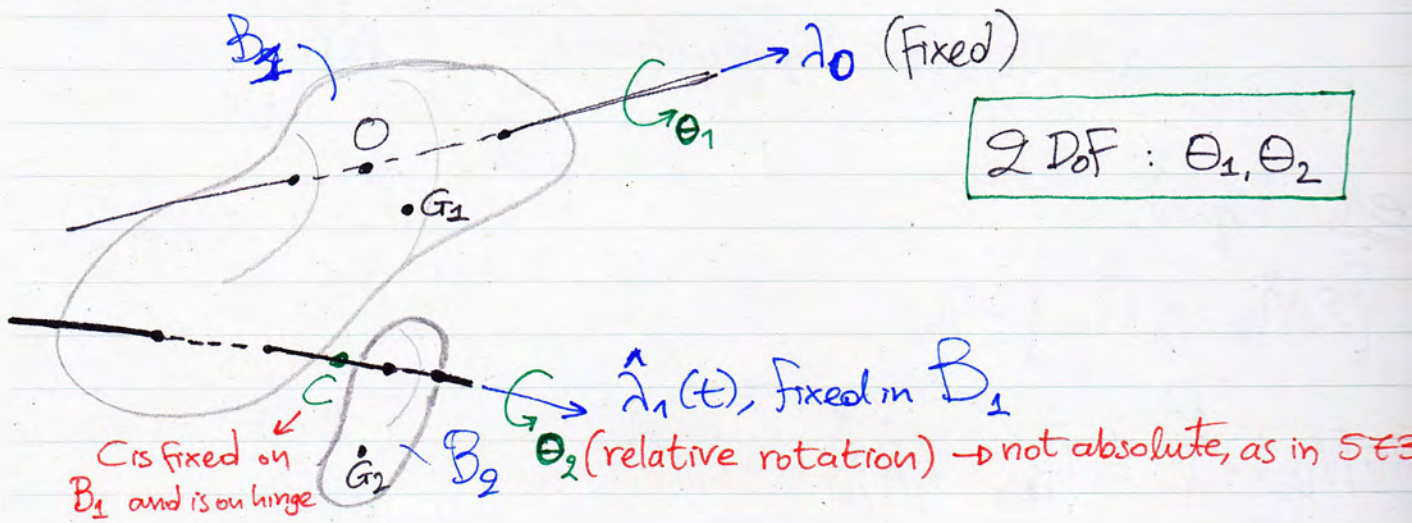 B1
λ0 (fixed)
O
θ1
2 DoF : θ1, θ2
G1
C
λ̂1(t), fixed in B1
C is fixed on
B1 and is on hinge
G2
B2
θ2 (relative rotation) → not absolute, as in St3